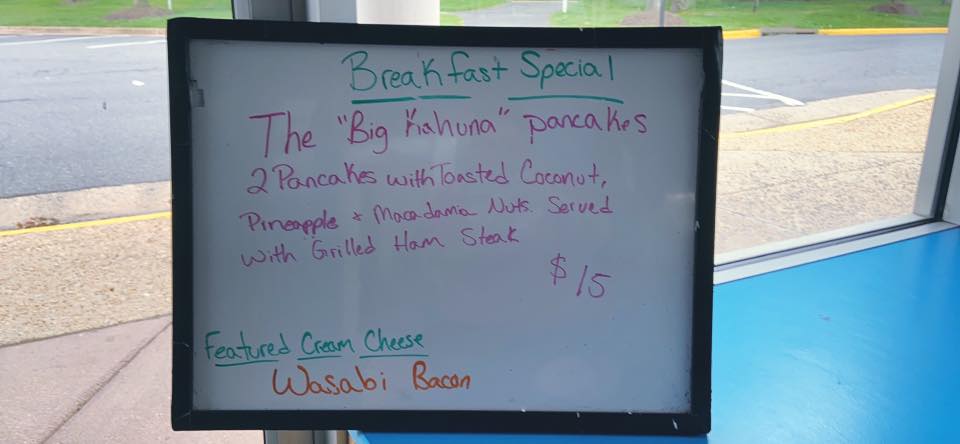 Breakfast Special
The "Big Kahuna" pancakes
2 Pancakes with Toasted Coconut,
Pineapple + Macadamia Nuts. Served
with Grilled Ham Steak
$15
Featured Cream Cheese
Wasabi Bacon